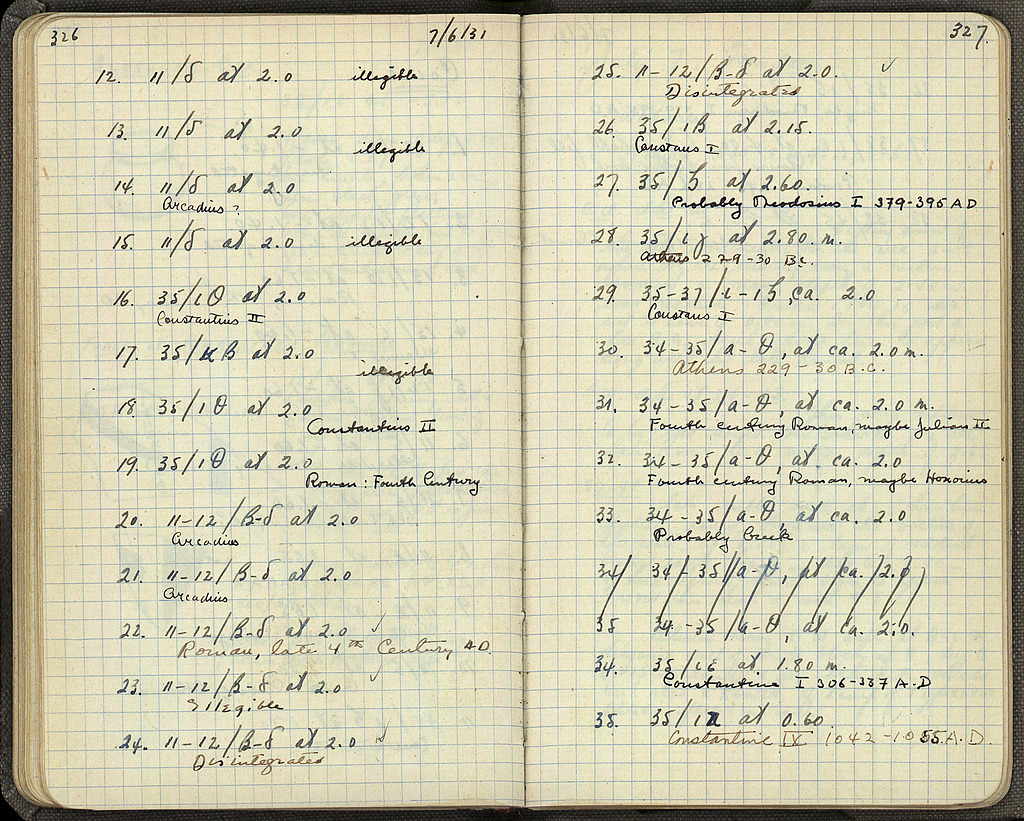 326
7/6/31
12. 11/δ at 2.0 illegible
13. 11/δ at 2.0
illegible
14. 11/δ at 2.0
Arcadius ?
15. 11/δ at 2.0 illegible
16. 35/ιΘ at 2.0
Constantius II
17. 35/ Β at 2.0
illegible
18. 35/ιΘ at 2.0
Constantius II
19. 35/ιΘ at 2.0
Roman: Fourth Century
20. 11-12/Β-δ at 2.0
Arcadius
21. 11-12/Β-δ at 2.0
Arcadius
22. 11-12/Β-δ at 2.0 ✓
Roman, late 4th Century A.D.
23. 11-12/Β-δ at 2.0 ✓
Illegible
24. 11-12/Β-δ at 2.0 ✓
Disintegrated
327.
25. 11-12/Β-δ at 2.0. ✓
Disintegrated
26. 35/ιΒ at 2.15.
Constans I
27. 35/ at 2.60.
Probably Theodosius I 379-395 AD
28. 35/ιγ at 2.80 m.
Athens 229-30 B.C.
29. 35-37/ι-ι , ca. 2.0
Constans I
30. 34-35/α-Θ, at ca. 2.0 m.
Athens 229-30 B.C.
31. 34-35/α-Θ, at ca. 2.0 m.
Fourth century Roman, maybe Julian II
32. 34-35/α-Θ, at ca. 2.0
Fourth century Roman, maybe Honorius
33. 34-35/α-Θ, at ca. 2.0
Probably Greek
34 34-35/α-Θ, at ca. 2.0
35 34-35/α-Θ, at ca. 2.0.
34. 35/ιε at 1.80 m.
Constantine I 306-337 A.D
35. 35/ at 0.60
Constantine IX 1042-1055 A.D.